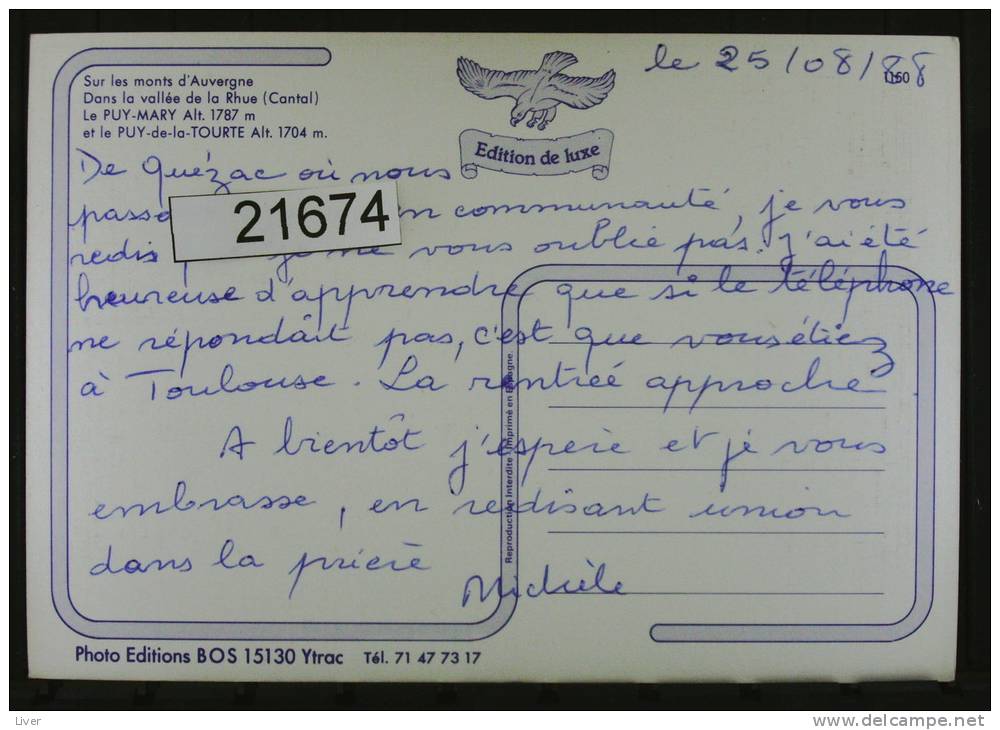 Sur les monts d'Auvergne
Dans la vallée de la Rhue (Cantal)
Le PUY-MARY Alt. 1787 m
et le PUY-de-la-TOURTE Alt. 1704 m.
Edition de luxe
le 25/08/88
1150
De Quézac où nous
21674
communauté, je vous
redis je ne vous oublie pas. J'ai été
heureuse d'apprendre que si le téléphone
ne répondait pas, c'est que vous étiez
à Toulouse. La rentrée approche
A bientôt j'espère et je vous
embrasse, en redisant union
dans la prière
Michèle
Reproduction Interdite - Imprimé en Espagne.
Photo Editions BOS 15130 Ytrac Tél. 71 47 73 17
Liver
www.delcampe.net